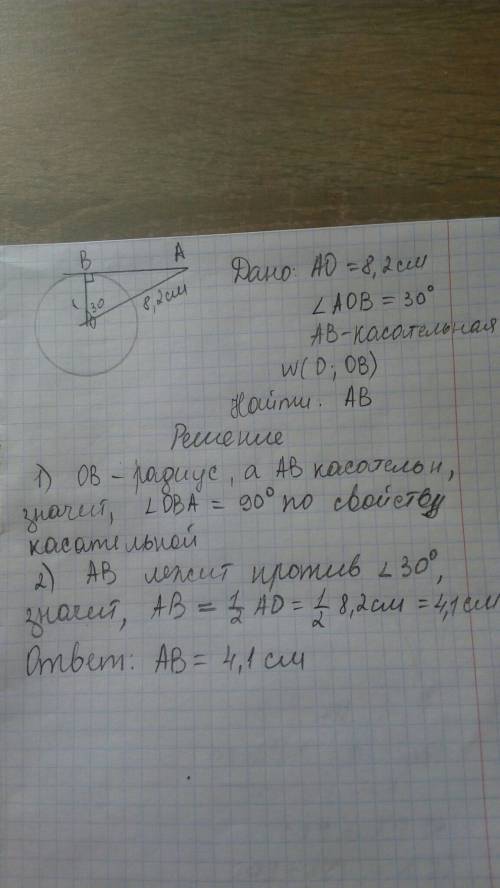 B A
30
8,2см
Дано: AO = 8,2 см
∠AOB = 30°
AB-касательная
W(O; OB)
Найти: AB
Решение
1) OB – радиус, а AB касательн,
значит, ∠OBA = 90° по свойству
касательной
2) AB лежит против ∠30°,
значит, AB = 1/2 AO = 1/2 8,2см = 4,1см
Ответ: AB = 4,1 см